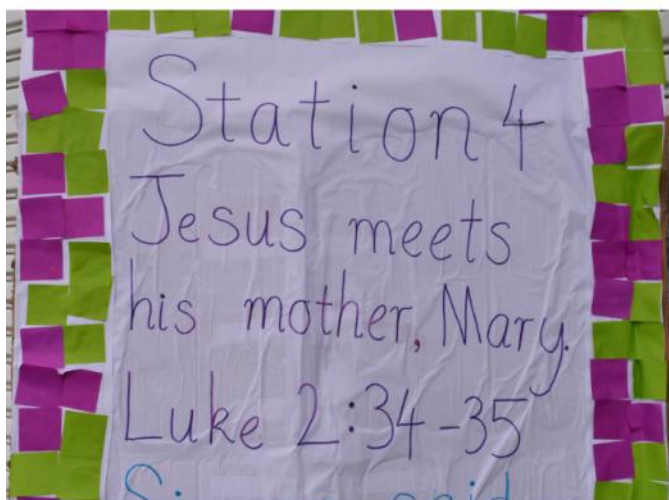 Station 4
Jesus meets
his mother, Mary.
Luke 2:34-35